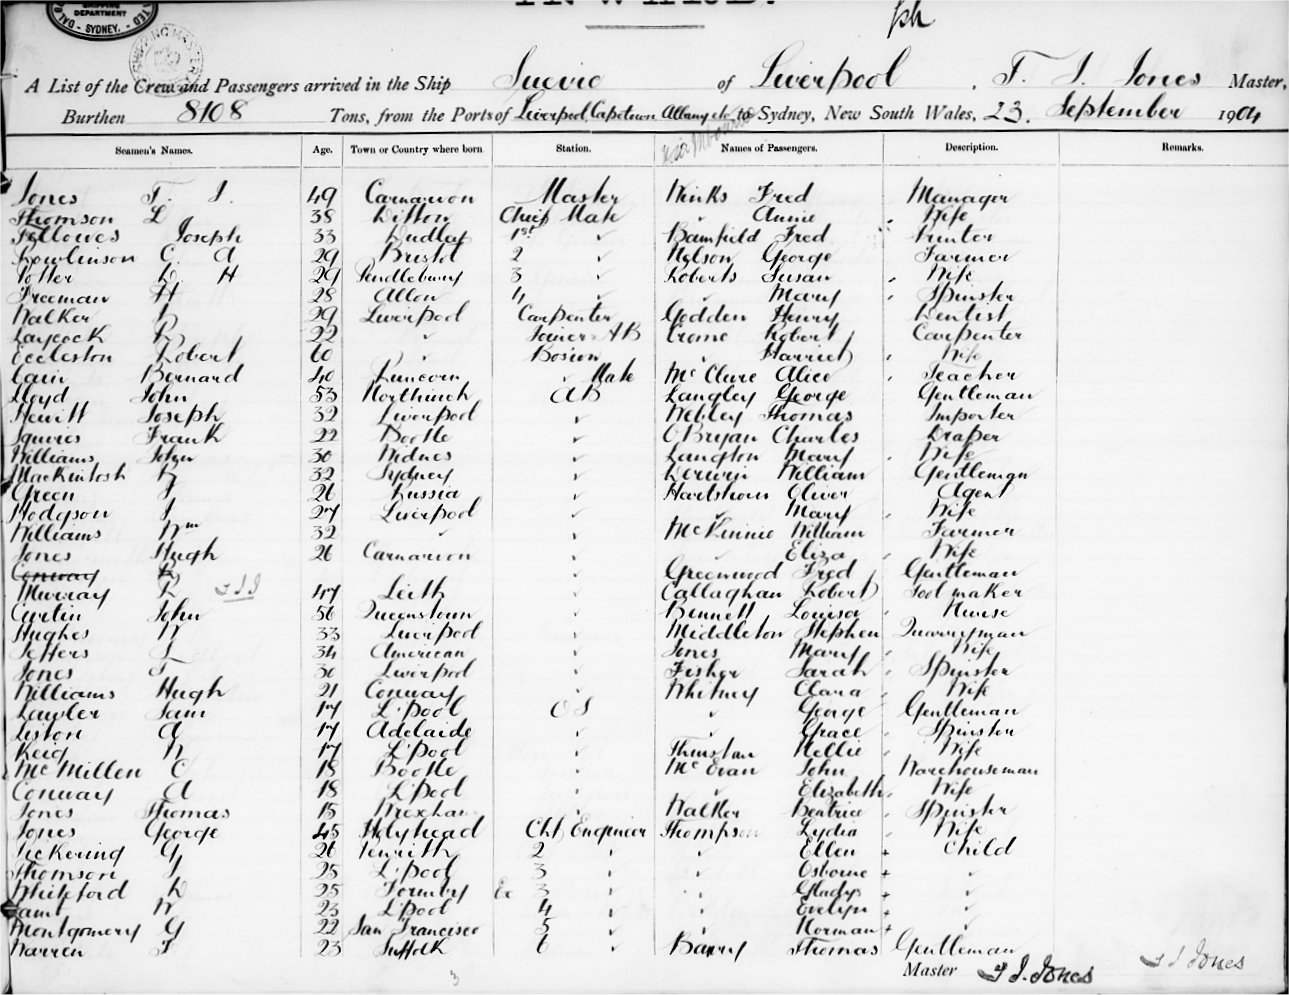 SHIPPING
DEPARTMENT
SYDNEY.
INWARD.
A List of the Crew and Passengers arrived in the Ship Suevic of Liverpool, T. J. Jones Master,
Burthen 8108 Tons, from the Ports of Liverpool, Capetown Albany etc to Sydney, New South Wales, 23. September 1904
Seamen's Names. Age. Town or Country where born Station. Names of Passengers. Description. Remarks.
Jones T. J. 49 Carnarvon Master Winks Fred Manager
Thomson L 38 Ditton Chief Mate " Annie Wife
Fellowes Joseph 33 Dudley 1st " Bamfield Fred Printer
Rowlinson C. A 29 Bristol 2 " Nelson George Farmer
Potter D. H 29 Pendlebury 3 " Roberts Susan Wife
Freeman H 28 4 " " Mary Spinster
Walker 29 Liverpool Carpenter Godden Henry Dentist
Laycock R 22 " Joiner AB Crome Robert Carpenter
Eccleston Robert 60 " Bosun " Harriet Wife
Cain Bernard 40 Runcorn " Mate McClure Alice Teacher
Lloyd John 53 Northwich AB Langley George Gentleman
Hewitt Joseph 32 Liverpool " Webley Thomas Importer
Squires Frank 22 Bootle " O'Bryan Charles Draper
Williams John 30 Widnes " Langton Mary Wife
Mackintosh 32 Sydney " William Gentleman
Green J 26 Russia " Hartshorn Oliver Agent
Hodgson J 27 Liverpool " " Mary Wife
Williams Wm 32 " " McKinnie William Farmer
Jones Hugh 26 Carnarvon " " Eliza Wife
Conway " Greenwood Fred Gentleman
Murray R TJJ 47 Leith " Callaghan Robert Toolmaker
Curtin John 56 Queenstown " Bennett Louisa Nurse
Hughes W 33 Liverpool " Middleton Stephen Quarryman
Jeffers L 34 American " Jones Mary Wife
Jones T 30 Liverpool " Fisher Sarah Spinster
Williams Hugh 21 Conway " Whitney Clara Wife
Lawler Sam 17 L'pool OS " George Gentleman
Liston A 17 Adelaide " " Grace Spinster
Keig W 17 L'pool " Thurston Nellie Wife
McMillen C 18 Bootle " McEvan John Warehouseman
Conway A 18 L'pool " " Elizabeth Wife
Jones Thomas 15 Wrexham " Walker Beatrice Spinster
Jones George 45 Holyhead Chf Engineer Thompson Lydia Wife
Pickering G 26 Penrith 2 " " Ellen Child
Thomson J 25 L'pool 3 " " Osborne "
Whiteford D 25 Formby Ex 3 " " Gladys "
W 23 L'pool 4 " " Evelyn "
Montgomery G 22 San Francisco 5 " " Norman "
Warren F 23 Suffolk 6 " Barry Thomas Gentleman
Master T J. Jones T J Jones
3